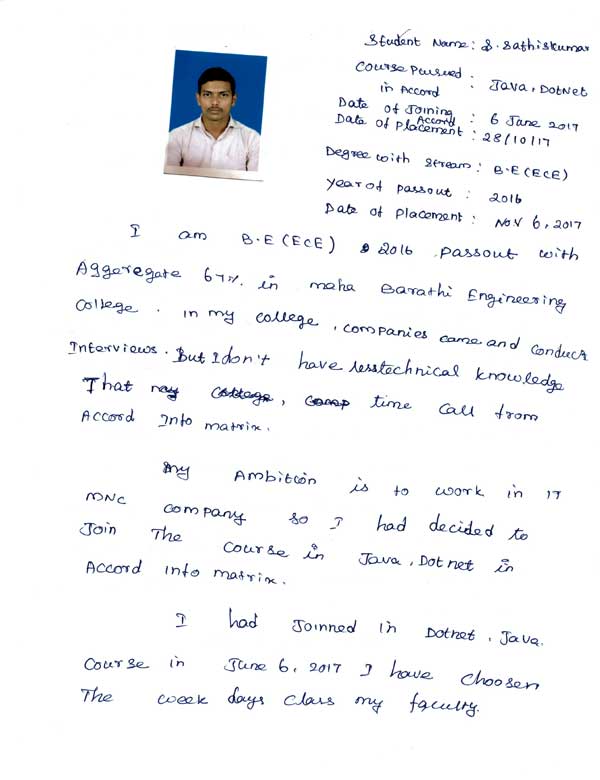 Student Name: S. Sathiskumar
Course Persued : Java, DotNet
in Accord
Date of Joining : 6 June 2017
Accord
Date of Placement : 28/10/17
Degree with Stream : B.E (ECE)
Year of Passout : 2016
Date of Placement : Nov 6, 2017
I am B.E (ECE) 2016 passout with
Aggeregate 67%. in maha Barathi Engineering
College. in my college, companies came and conduct
Interviews. But I don't have technical knowledge
That time call from
Accord Info matrix.
My Ambition is to work in IT
MNC company so I had decided to
Join The Course in Java, Dot net in
Accord info matrix.
I had Joinned in Dotnet, Java.
Course in June 6, 2017 I have choosen
The week days class my faculty.